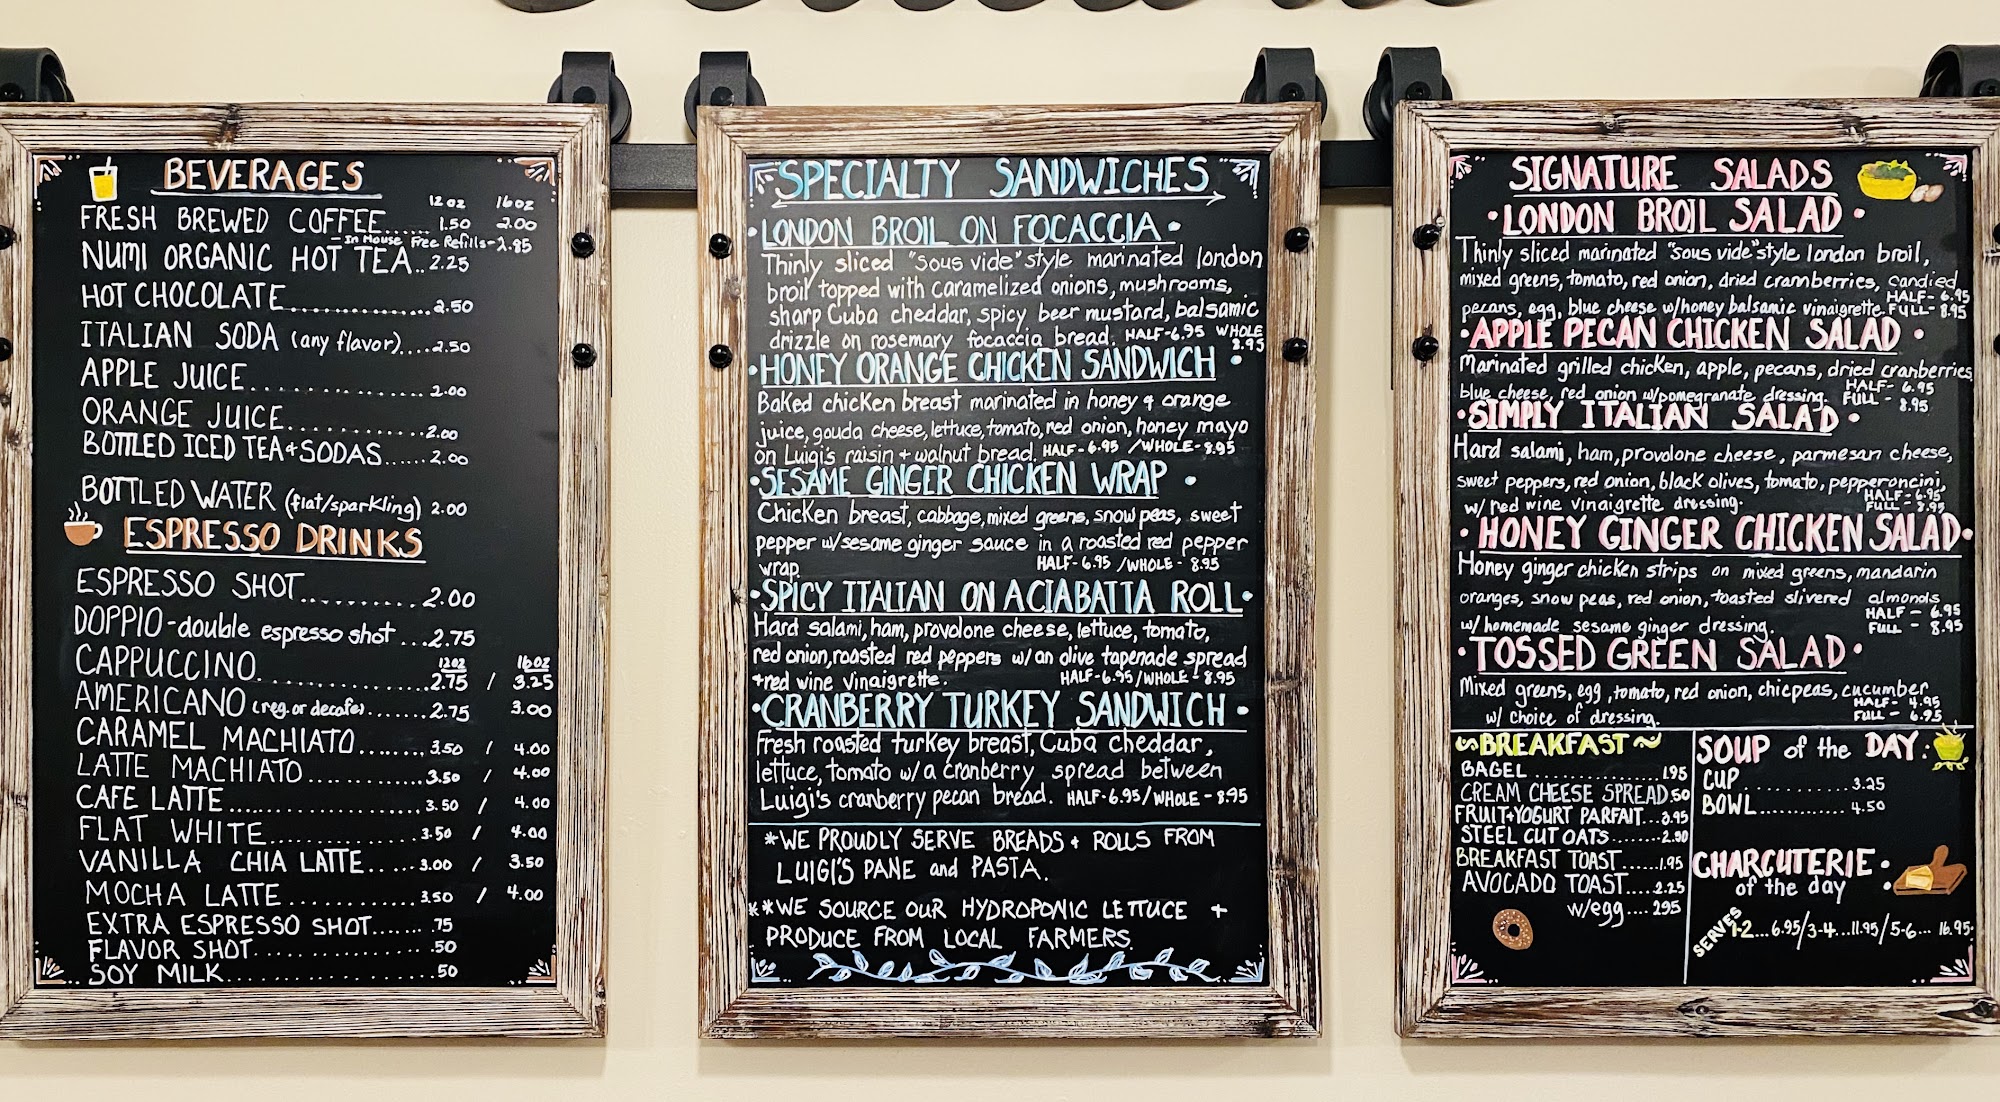 BEVERAGES
12oz 16oz
FRESH BREWED COFFEE...... 1.50 2.00
In House Free Refills-2.85
NUMI ORGANIC HOT TEA.. 2.25
HOT CHOCOLATE................2.50
ITALIAN SODA (any flavor)....2.50
APPLE JUICE..................2.00
ORANGE JUICE.................2.00
BOTTLED ICED TEA+SODAS......2.00
BOTTLED WATER (flat/sparkling) 2.00
ESPRESSO DRINKS
ESPRESSO SHOT...........2.00
DOPPIO-double espresso shot...2.75
12oz 16oz
CAPPUCCINO.................2.75 / 3.25
AMERICANO (reg. or decafe).......2.75 3.00
CARAMEL MACHIATO.......3.50 / 4.00
LATTE MACHIATO............3.50 / 4.00
CAFE LATTE....................3.50 / 4.00
FLAT WHITE................3.50 / 4.00
VANILLA CHIA LATTE......3.00 / 3.50
MOCHA LATTE..............3.50 / 4.00
EXTRA ESPRESSO SHOT...... .75
FLAVOR SHOT................. .50
SOY MILK.....................50
SPECIALTY SANDWICHES
•LONDON BROIL ON FOCACCIA•
Thinly sliced "Sous vide" style marinated london
broil topped with caramelized onions, mushrooms,
sharp Cuba cheddar, spicy beer mustard, balsamic
drizzle on rosemary focaccia bread. HALF-6.95 WHOLE
8.95
•HONEY ORANGE CHICKEN SANDWICH•
Baked chicken breast marinated in honey & orange
juice, gouda cheese, lettuce, tomato, red onion, honey mayo
on Luigi's raisin + walnut bread. HALF-6.95 /WHOLE-8.95
•SESAME GINGER CHICKEN WRAP •
Chicken breast, cabbage, mixed greens, snow peas, sweet
pepper w/sesame ginger sauce in a roasted red pepper
wrap. HALF-6.95 /WHOLE-8.95
•SPICY ITALIAN ON A CIABATTA ROLL•
Hard salami, ham, provolone cheese, lettuce, tomato,
red onion, roasted red peppers w/an olive tapenade spread
+red wine vinaigrette. HALF-6.95/WHOLE-8.95
•CRANBERRY TURKEY SANDWICH •
Fresh roasted turkey breast, Cuba cheddar,
lettuce, tomato w/a cranberry spread between
Luigi's cranberry pecan bread. HALF-6.95/WHOLE-8.95
*WE PROUDLY SERVE BREADS + ROLLS FROM
LUIGI'S PANE and PASTA.
**WE SOURCE OUR HYDROPONIC LETTUCE +
PRODUCE FROM LOCAL FARMERS.
SIGNATURE SALADS
•LONDON BROIL SALAD•
Thinly sliced marinated "sous vide" style london broil,
mixed greens, tomato, red onion, dried crannberries, candied
pecans, egg, blue cheese w/honey balsamic vinaigrette. HALF-6.95
FULL-8.95
•APPLE PECAN CHICKEN SALAD •
Marinated grilled chicken, apple, pecans, dried cranberries,
blue cheese, red onion w/pomegranate dressing. HALF-6.95
FULL-8.95
•SIMPLY ITALIAN SALAD•
Hard salami, ham, provolone cheese, parmesan cheese,
sweet peppers, red onion, black olives, tomato, pepperoncini,
w/ red wine vinaigrette dressing. HALF-6.95
FULL-8.95
•HONEY GINGER CHICKEN SALAD•
Honey ginger chicken strips on mixed greens, mandarin
oranges, snow peas, red onion, toasted slivered almonds
w/homemade sesame ginger dressing. HALF-6.95
FULL-8.95
•TOSSED GREEN SALAD•
Mixed greens, egg, tomato, red onion, chicpeas, cucumber
w/ choice of dressing. HALF-4.95
FULL-6.95
~BREAKFAST~
BAGEL................195
CREAM CHEESE SPREAD.50
FRUIT+YOGURT PARFAIT...3.95
STEEL CUT OATS........2.90
BREAKFAST TOAST......1.95
AVOCADO TOAST....2.25
w/egg....295
SOUP of the DAY:
CUP..........3.25
BOWL..........4.50
CHARCUTERIE•
of the day
SERVES 1-2...6.95/3-4...11.95/5-6...16.95.